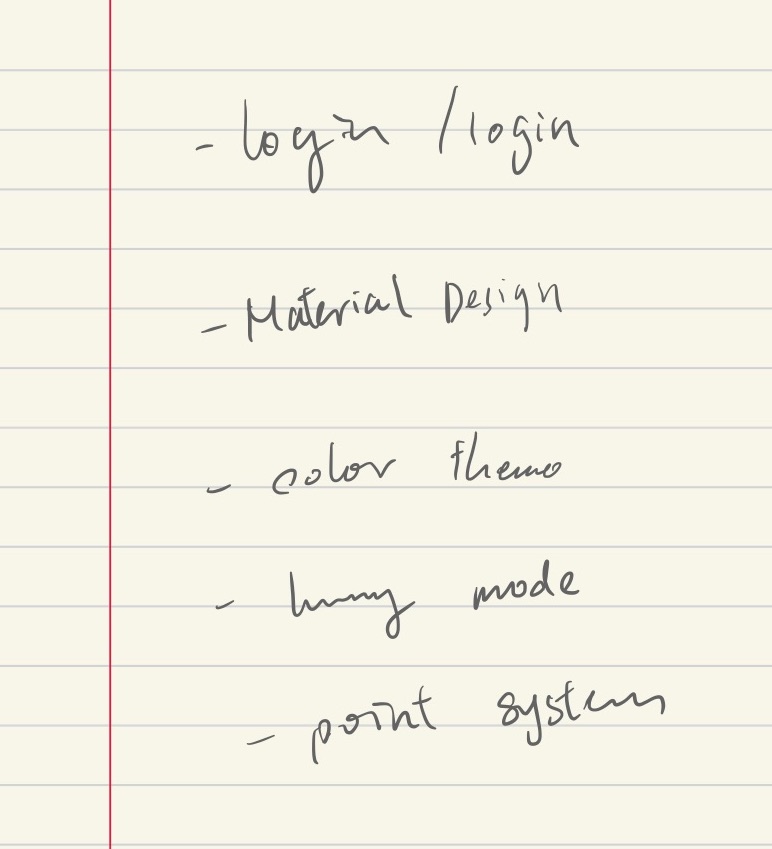 - login /login
- Material Design
- color theme
- mode
- point system